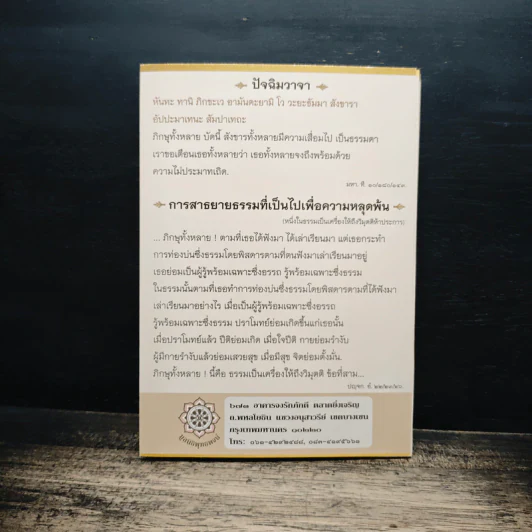 ปัจฉิมวาจา
หันทะ ทานิ ภิกขะเว อามันตะยามิ โว วะยะธัมมา สังขารา
อัปปะมาเทนะ สัมปาเทถะ
ภิกษุทั้งหลาย บัดนี้ สังขารทั้งหลายมีความเสื่อมไป เป็นธรรมดา
เราขอเตือนเธอทั้งหลายว่า เธอทั้งหลายจงถึงพร้อมด้วย
ความไม่ประมาทเถิด.
มหา. ที.
การสาธยายธรรมที่เป็นไปเพื่อความหลุดพ้น
(หนึ่งในธรรมเป็นเครื่องให้ถึงวิมุตติห้าประการ)
... ภิกษุทั้งหลาย ! ตามที่เธอได้ฟังมา ได้เล่าเรียนมา แต่เธอกระทำ
การท่องบ่นซึ่งธรรมโดยพิสดารตามที่ตนฟังมาเล่าเรียนมาอยู่
เธอย่อมเป็นผู้รู้พร้อมเฉพาะซึ่งอรรถ รู้พร้อมเฉพาะซึ่งธรรม
ในธรรมนั้นตามที่เธอทำการท่องบ่นซึ่งธรรมโดยพิสดารตามที่ได้ฟังมา
เล่าเรียนมาอย่างไร เมื่อเป็นผู้รู้พร้อมเฉพาะซึ่งอรรถ
รู้พร้อมเฉพาะซึ่งธรรม ปราโมทย์ย่อมเกิดขึ้นแก่เธอนั้น
เมื่อปราโมทย์แล้ว ปีติย่อมเกิด เมื่อใจปีติ กายย่อมรำงับ
ผู้มีกายรำงับแล้วย่อมเสวยสุข เมื่อมีสุข จิตย่อมตั้งมั่น.
ภิกษุทั้งหลาย ! นี้คือ ธรรมเป็นเครื่องให้ถึงวิมุตติ ข้อที่สาม...
ปญฺจก. อํ.
อาคารจงรักภักดี ตลาดยิ่งเจริญ
ถ.พหลโยธิน แขวงอนุสาวรีย์ เขตบางเขน
กรุงเทพมหานคร ๑๐๒๒๐
โทร:
มูลนิธิพุทธพจน์